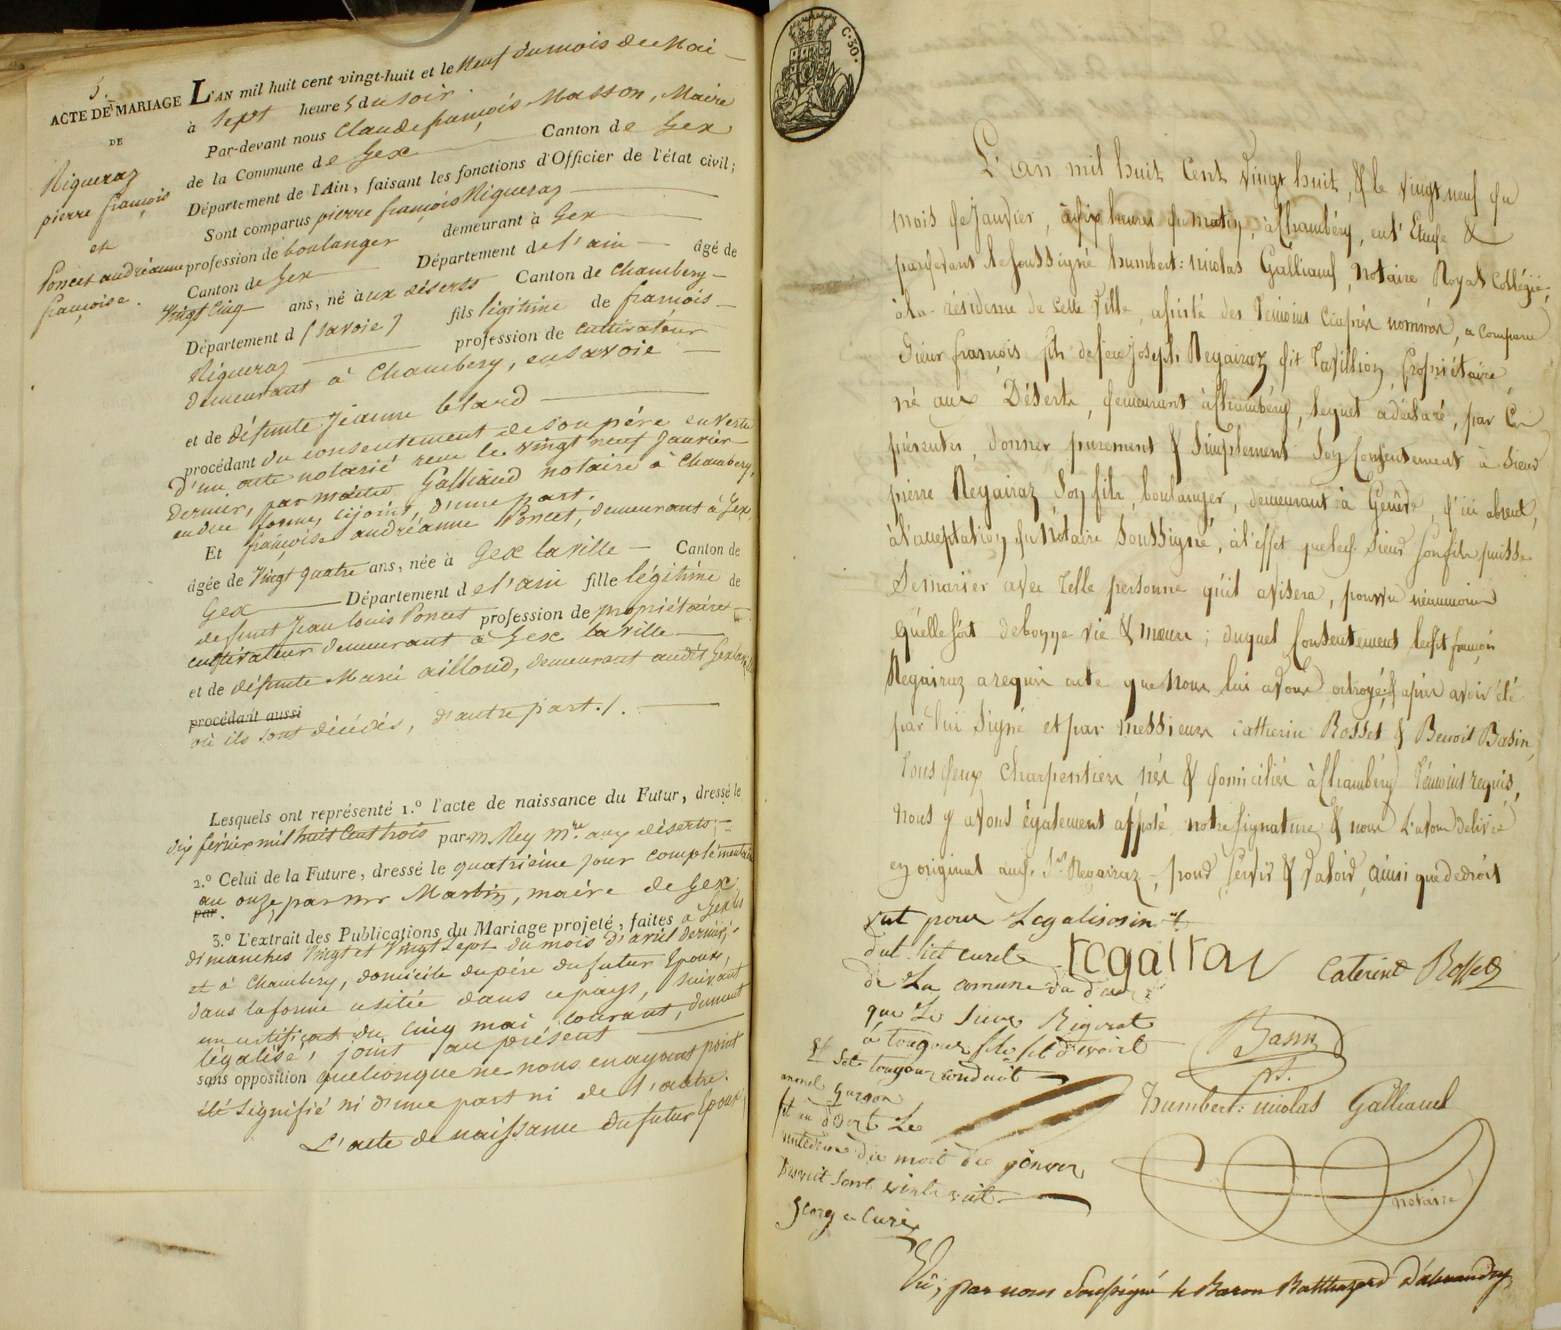 5.
ACTE DE MARIAGE
DE
Rigueraz
pierre françois
et
Poncet andréanne
françoise.
L'AN mil huit cent vingt-huit et le Neuf du mois de Mai
à Sept heures du soir.
Par-devant nous Claude françois Masson, Maire
de la Commune de Gex Canton de Gex
Département de l'Ain, faisant les fonctions d'Officier de l'état civil;
Sont comparus pierre françois Rigueraz
profession de boulanger demeurant à Gex
Canton de Gex Département de l'ain âgé de
Vingt Cinq ans, né aux déserts Canton de Chambery
Département d (Savoie) fils légitime de françois
Rigueraz profession de cultivateur
demeurant à Chambery, en savoie
et de défunte Jeanne
procédant du consentement de son père en vertu
d'un acte notarié reçu le vingt neuf Janvier
dernier, par maître Galliaud notaire à Chambery,
en due forme, cijoint, d'une part.
Et françoise andréanne Poncet, demeurant à Gex,
âgée de Vingt quatre ans, née à Gex la ville Canton de
Gex Département de l'ain fille légitime de
defunt Jean louis Poncet profession de propriétaire
cultivateur demeurant à Gex la ville
et de défunte Marie ailloud, demeurant audit Gex la ville
procédant aussi
où ils sont décédés, d'autre part./.
Lesquels ont représenté 1.º l'acte de naissance du Futur, dressé le
dix février mil huit Cent trois par m. Rey mre aux déserts;
2.º Celui de la Future, dressé le quatrième jour complémentaire
an onze, par mr Martin, maire de Gex
par
3.º L'extrait des Publications du Mariage projeté, faites à Gex les
dimanches Vingt et Vingt Sept du mois d'avril dernier,
et à Chambery, domicile du père du futur Epoux,
dans la forme usitée dans ce pays, suivant
un certificat du Cinq mai courant, dument
légalisé, joint au présent
sans opposition quelconque ne nous en ayant point
été signifié ni d'une part ni de l'autre.
L'acte de naissance du futur Epoux,
C. 30.
L'an mil huit Cent vingt huit, & le vingt neuf du
mois de Janvier, à dix heures du matin, à Chambéry, en l'Etude &
pardevant le soussigné humbert: nicolas Galliaud, Notaire Royal Collégié,
à la résidence de cette ville, assisté des Témoins ci après nommés, a comparu
Sieur françois fils de feu Joseph Regairaz dit Tavillion, Propriétaire,
né aux Déserts, demeurant à Chambéry, lequel a déclaré, par Ces
présentes, donner purement & simplement Son Consentement à Sieur
pierre Regairaz Son fils, boulanger, demeurant à Genève, d'ici absent,
à l'acceptation du Notaire Soussigné, à l'effet que led. Sieur Son fils puisse
Se marier avec Telle personne qu'il avisera, pourvu néanmoins
qu'elle soit de bonne vie & mœurs; duquel Consentement ledit françois
Regairaz a requis acte que Nous lui avons octroyé, & après avoir été
par lui Signé et par messieurs Catherin Rosset & Benoit Basin,
tous deux Charpentiers nés & domiciliés à Chambéry Témoins requis,
Nous y avons également apposé notre Signature & nous l'avons délivré
en original aud. Sr Regairaz, pour servir & valoir, ainsi que de droit
regairaz Caterint Rosset
Basin
humbert: nicolas Galliaud
notaire
vut pour Legalisosin
de La comune
que Le Sieur Rigerat
a tougour
Set tougour conduit
garson
Le
du moit de
vint vuit
curé
Vu, par nous Soussigné le Baron Balthazard D'alexandry